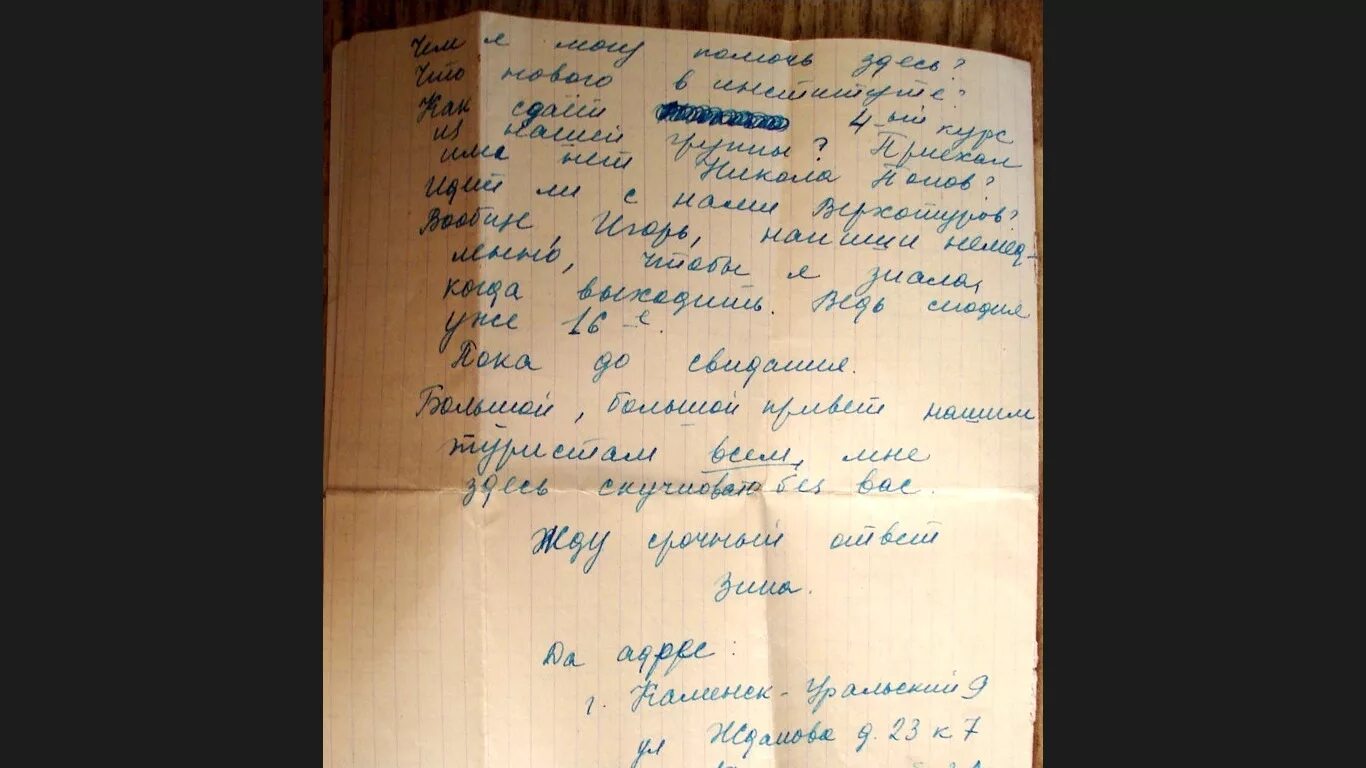 Чем я могу помочь здесь?
Что нового в институте?
Как сдаёт 4-ый курс
из нашей группы? Приехал
или нет Никола Попов?
Идёт ли с нами Верхотуров?
Вообще, Игорь, напиши немед-
ленно, чтобы я знала,
когда выходить. Ведь сегодня
уже 16-е.
Пока до свидания.
Большой, большой привет нашим
туристам всем, мне
здесь скучновато без вас.
Жду срочный ответ
Зина.
Да адрес:
г. Каменск-Уральский 9
ул Жданова д. 23 к 7